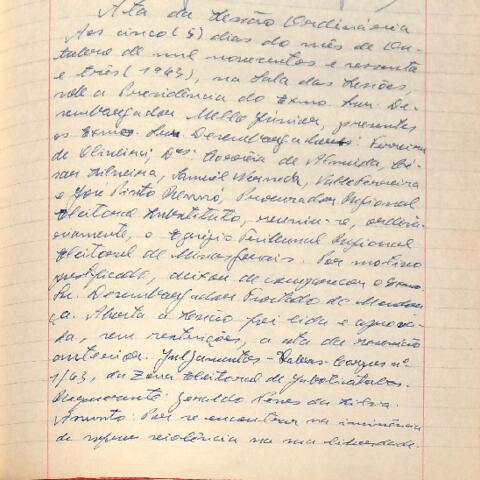 Ata da Sessão Ordinária
Aos cinco (5) dias do mês de Ou-
tubro de mil novecentos e sessenta
e três (1963), na Sala das Sessões,
sob a Presidência do Exmo. Snr. De-
sembargador Mello Júnior, presentes
os Exmos. Snr. Desembargadores: Ferreira
de Oliveira; Drs. Corrêia de Almeida, Cé-
sar Silveira, Valle Ferreira
e José Pinto Renaró, Procurador Regional
Eleitoral Substituto, reuniu-se, ordin-
riamente, o Egrégio Tribunal Regional
Eleitoral de Minas Gerais. Por motivo
justificado, deixou de comparecer o Exmo.
Sr. Desembargador Furtado de Mendon-
ça. Aberta a sessão foi lida e aprova-
da, sem restrições, a ata da reunião
anterior. Julgamentos - Habeas-Corpus nº
1/63, da Zona Eleitoral de Jaboticatubas.
Geraldo da Silva.
Assunto: Por se encontrar na iminência
de sofrer violência na sua liberdade.